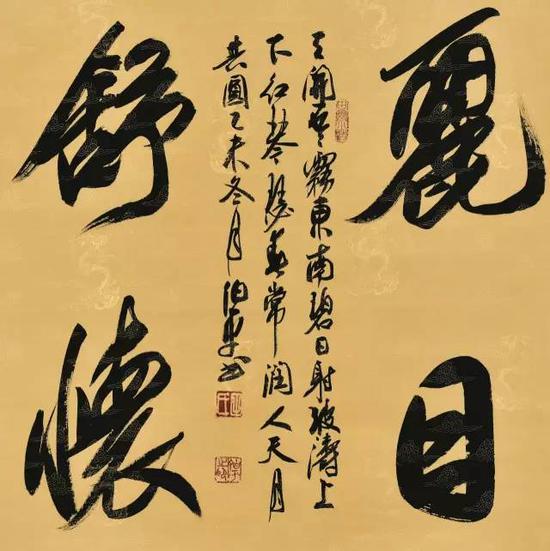 麗目
天開雲霧東南碧日射波濤上
下紅琴瑟春常潤人天月
共圓乙未冬月
舒懷